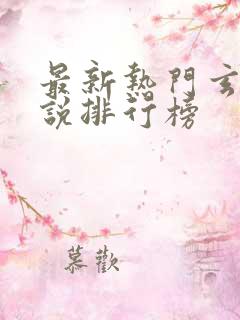 最新熱門
說排行榜
慕歡